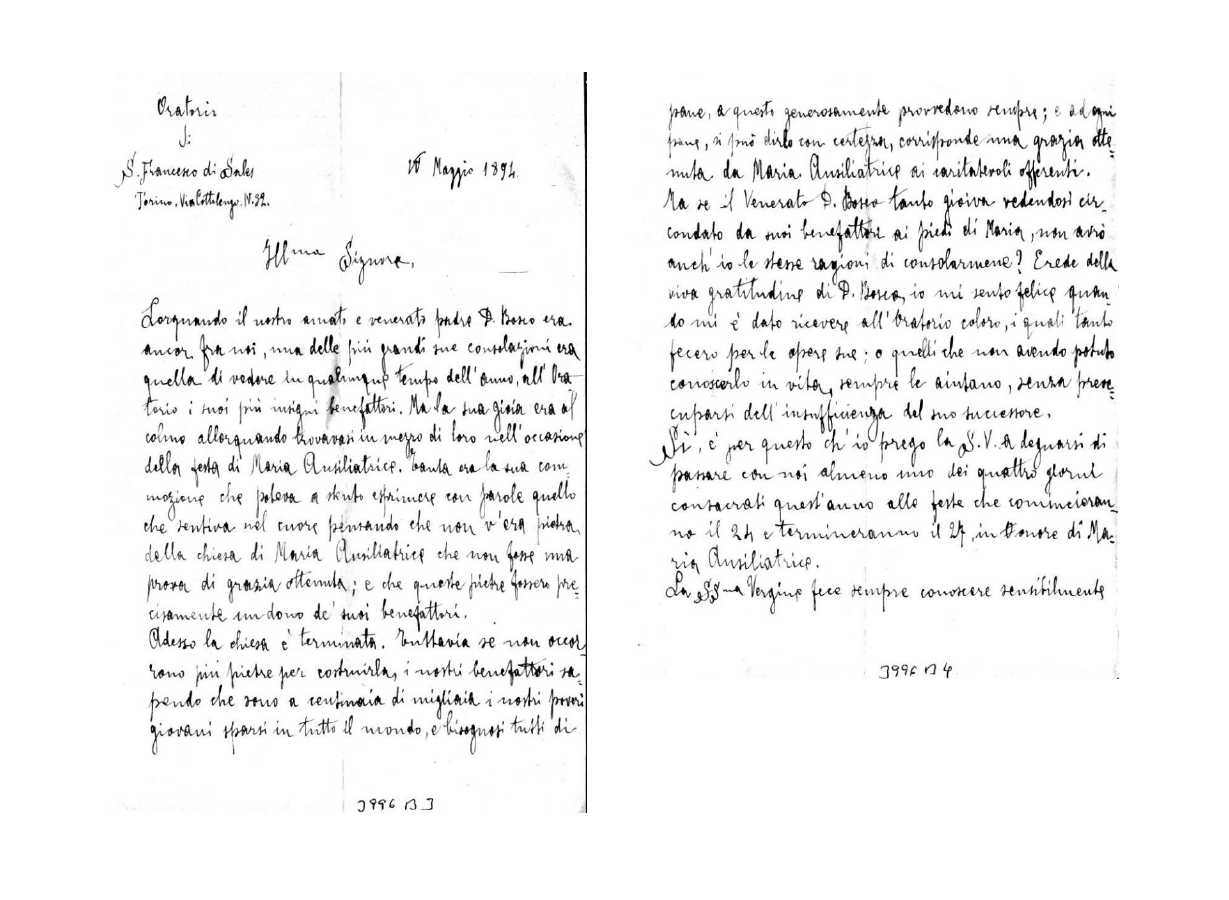 Oratorio
di
S. Francesco di Sales
Torino. Via Cottolengo. N. 32.
Maggio 1894.
Ill.ma Signora,
Lorquando il nostro amato e venerato padre D. Bosco era
ancor fra noi, una delle più grandi sue consolazioni era
quella di vedere in qualunque tempo dell'anno, all'Ora-
torio i suoi più insigni benefattori. Ma la sua gioia era al
colmo allorquando trovavasi in mezzo di loro nell'occasione
della festa di Maria Ausiliatrice. Tanta era la sua com-
mozione che poteva a stento esprimere con parole quello
che sentiva nel cuore pensando che non v'era pietra
della chiesa di Maria Ausiliatrice che non fosse una
prova di grazia ottenuta; e che queste pietre fossero pre-
cisamente un dono de' suoi benefattori.
Adesso la chiesa è terminata. Tuttavia se non occor
rono più pietre per costruirla, i nostri benefattori sa-
pendo che sono a centinaia di migliaia i nostri poveri
giovani sparsi in tutto il mondo, e bisognosi tutti di
3996 B 3
pane, a questo generosamente provvedono sempre; e ad ogni
pane, si può dirlo con certezza, corrisponde una grazia otte-
nuta da Maria Ausiliatrice ai caritatevoli offerenti.
Ma se il Venerato D. Bosco tanto gioiva vedendosi cir-
condato da suoi benefattori ai piedi di Maria, non avrò
anch'io le stesse ragioni di consolarmene? Erede della
viva gratitudine di D. Bosco, io mi sento felice quan-
do mi è dato ricevere all'Oratorio coloro, i quali tanto
fecero per le opere sue; o quelli che non avendo potuto
conoscerlo in vita, sempre le aiutano, senza preoc-
cuparsi dell'insufficienza del suo successore.
Sì, è per questo ch'io prego la S.V. a degnarsi di
passare con noi almeno uno dei quattro giorni
consacrati quest'anno alle feste che comincieran
no il 24 e termineranno il 27, in Onore di Ma-
ria Ausiliatrice.
La SS.ma Vergine fece sempre conoscere sensibilmente
3996 B 4